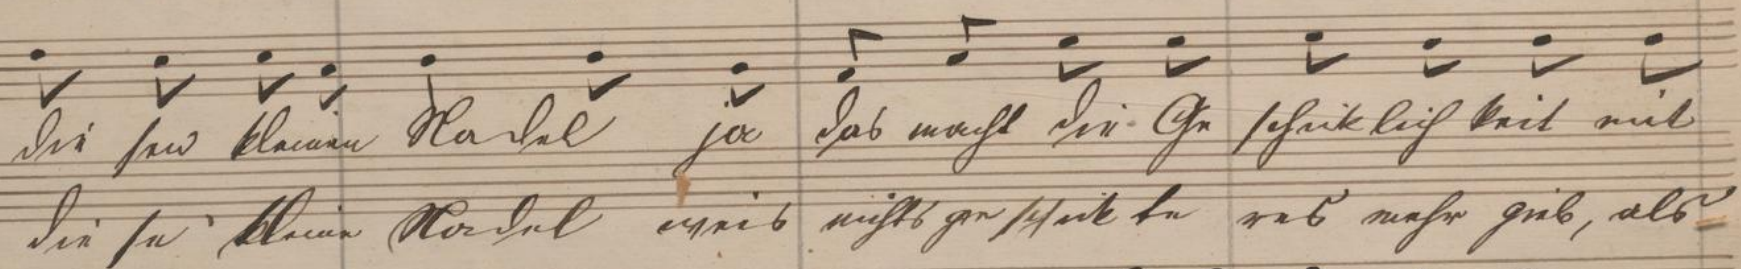 die sen kleinen Nadel ja das macht die Ge schik lich keit mit
die se kleine Nadel weis nichts ge schik te res mehr gieb, als